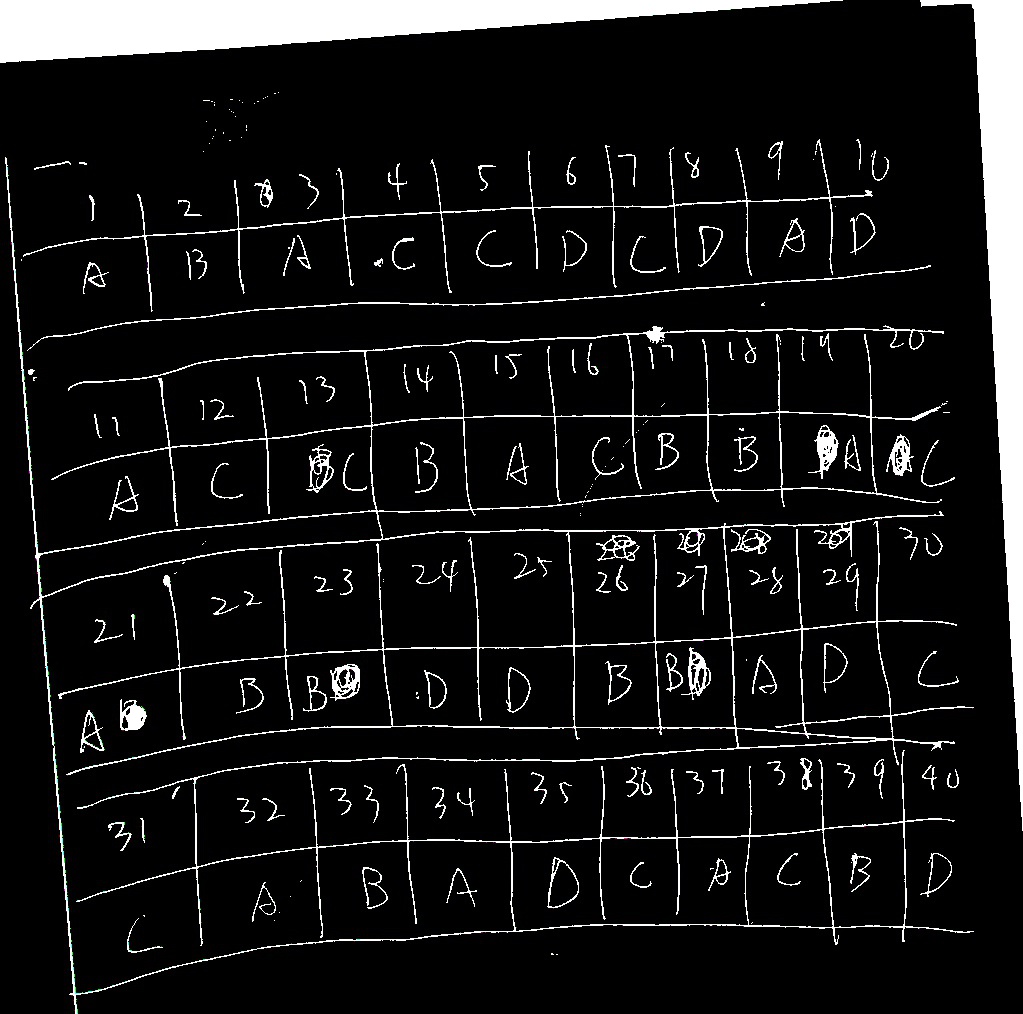 1 2 3 4 5 6 7 8 9 10
A B A C C D C D A D
11 12 13 14 15 16 17 18 19 20
A C C B A C B B A C
21 22 23 24 25 26 27 28 29 30
A B B D D B B A D C
31 32 33 34 35 36 37 38 39 40
C A B A D C A C B D